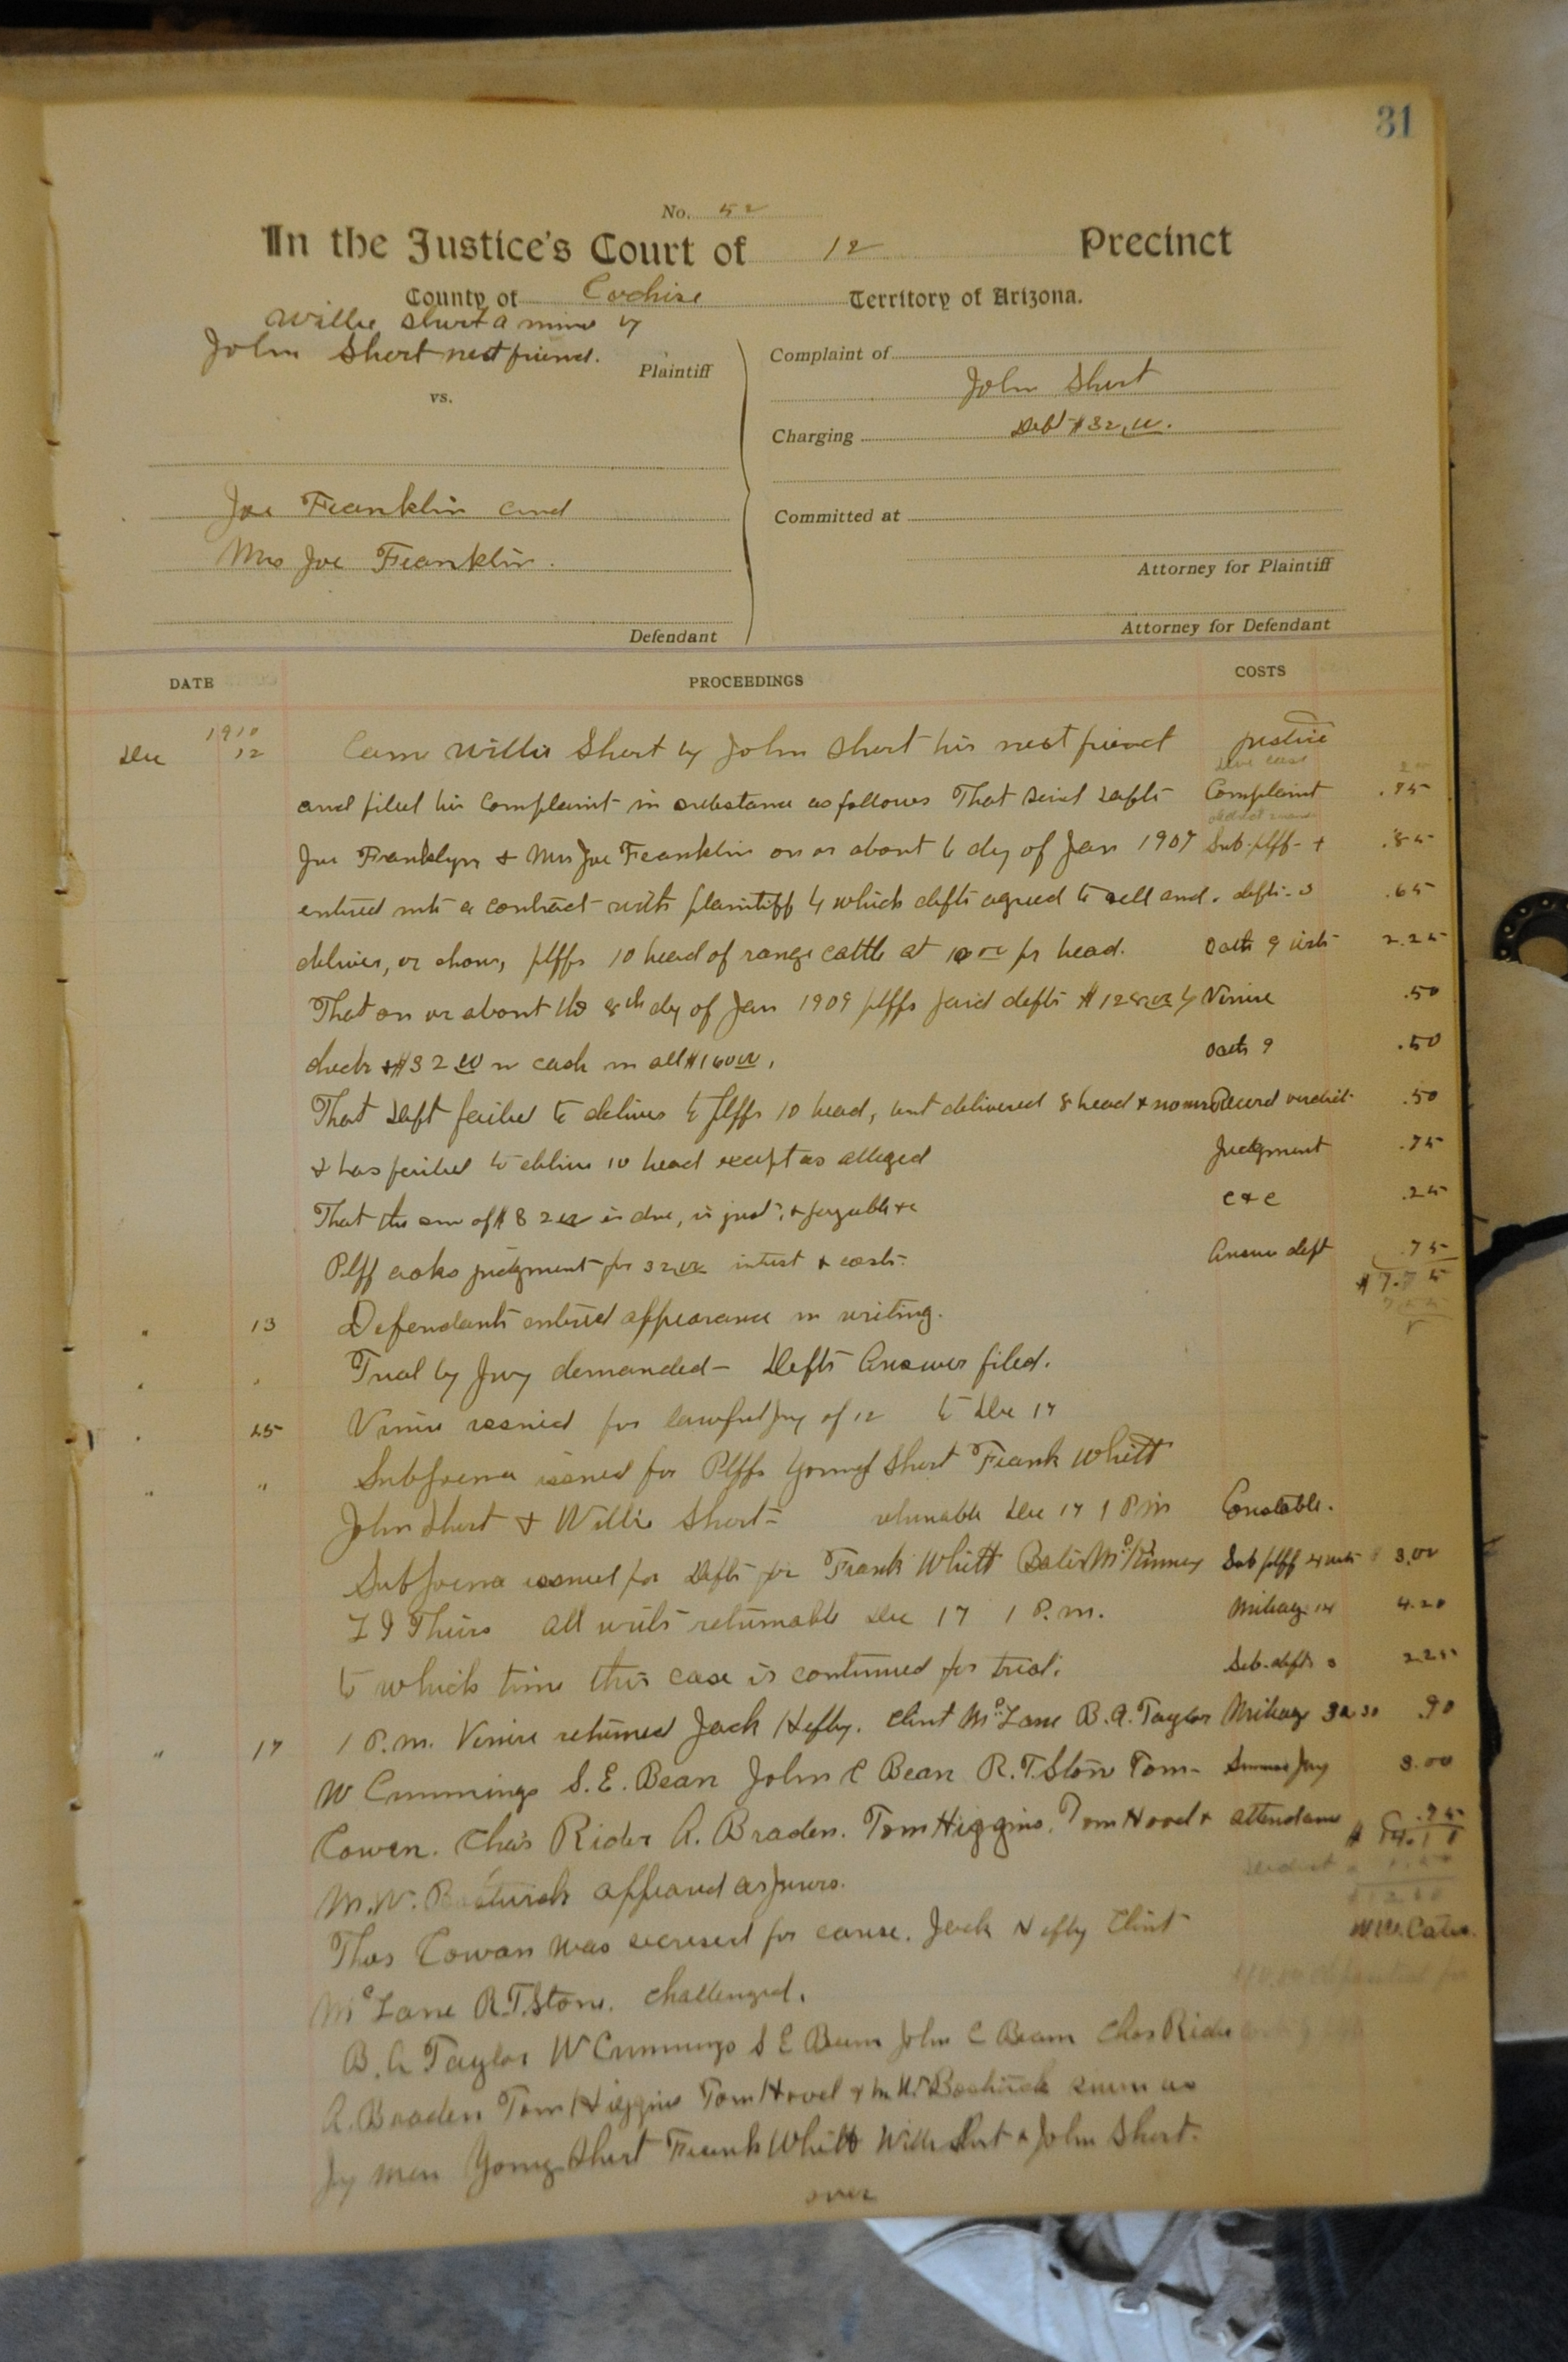 31
No. 52
In the Justice's Court of 12 Precinct
County of Cochise Territory of Arizona.
Willie Short a minor by
John Short next friend. Plaintiff
vs.
Joe Franklin and
Mrs Joe Franklin.
Defendant
Complaint of
John Short
Charging Debt $32.00.
Committed at
Attorney for Plaintiff
Attorney for Defendant
DATE PROCEEDINGS COSTS
1910
Dec 12 Came Willie Short by John Short his next friend Justice
and filed his complaint in substance as follows That said defts Complaint .75
Joe Franklyn & Mrs Joe Franklin on or about 6 day of Jan 1909 Sub. plff - 4 .85
entered into a contract with plaintiff by which defts agreed to sell and defts - 3 .65
deliver, or show, plffs 10 head of range cattle at 1600 pr head. Oath 9 2.25
That on or about the 8th day of Jan 1909 plffs paid defts $128.00 by Venire .50
check & $32.00 in cash in all $160.00. Oath 9 .50
That Deft failed to deliver to plffs 10 head, but delivered 8 head & no more Record verdict .50
& has failed to deliver 10 head except as alleged Judgment .75
That the sum of $32.00 is due, is just, & payable &c C & C .25
Plff asks judgment for 32.00 interest & costs. Answer deft .75
$7.75
" 13 Defendants entered appearance in writing.
" " Trial by Jury demanded - Defts Answer filed.
" 15 Venire issued for lawful jury of 12 to Dec 17
" " Subpoena issued for Plffs Young Short Frank Whitt
John Short & Willie Short - returnable Dec 17 1 P.m Constable.
Subpoena issued for Defts for Frank Whitt McKinney Sub plff 4 3.00
all writs returnable Dec 17 1 P.m. Mileage 14 4.20
to which time this case is continued for trial. Sub. defts 3 2.25
" 17 1 P.m. Venire returned Jack Hefly. Clint McLane B.A. Taylor Mileage .90
W Cummings S.E. Bean John C Bean R.T. Stone Tom Summons Jury 3.00
Cowen. Chas Rider A. Braden. Tom Higgins. Tom Hood & attendance .75
M.W. appeared as jurors.
Thos Cowan was excused for cause. Jack Hefly Clint W.W. Cates.
McLane R.T. Stone. challenged.
B.A Taylor W Cummings S E Bean John C Beam Chas Rider
A. Braden Tom Higgins Tom Hovel & M.W. Bostwick sworn as
Jy men Young Short Frank Whitt Willie Short & John Short.
over